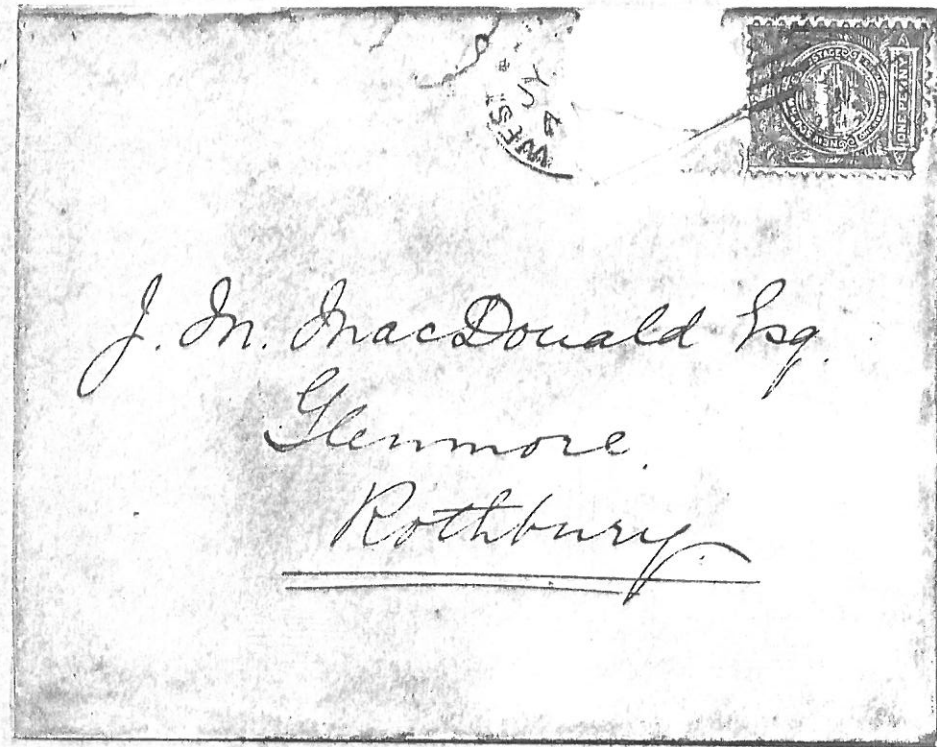 WEST
ONE PENNY
J. M. MacDonald Esq.
Glenmore.
Rothbury.